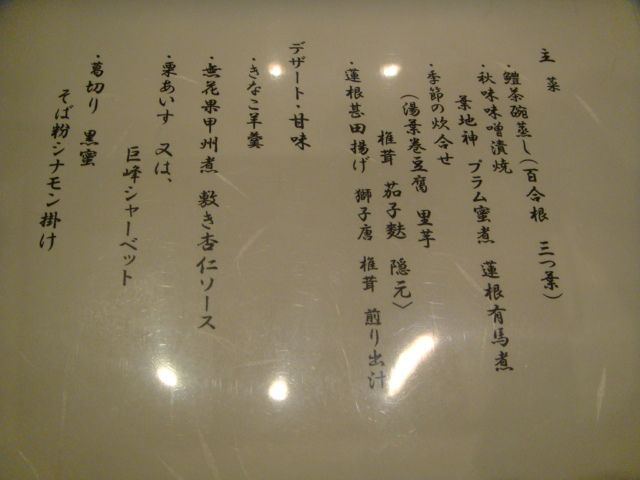 主菜
・鱧茶碗蒸し(百合根 三つ葉)
・秋味味噌漬焼
葉地神 プラム蜜煮 蓮根有馬煮
・季節の炊合せ
(湯葉巻豆腐 里芋
椎茸 茄子麩 隠元)
・蓮根甚田揚げ 獅子唐 椎茸 煎り出汁
デザート・甘味
・きなこ羊羹
・無花果甲州煮 敷き杏仁ソース
・栗あいす 又は、
巨峰シャーベット
・葛切り 黒蜜
そば粉シナモン掛け